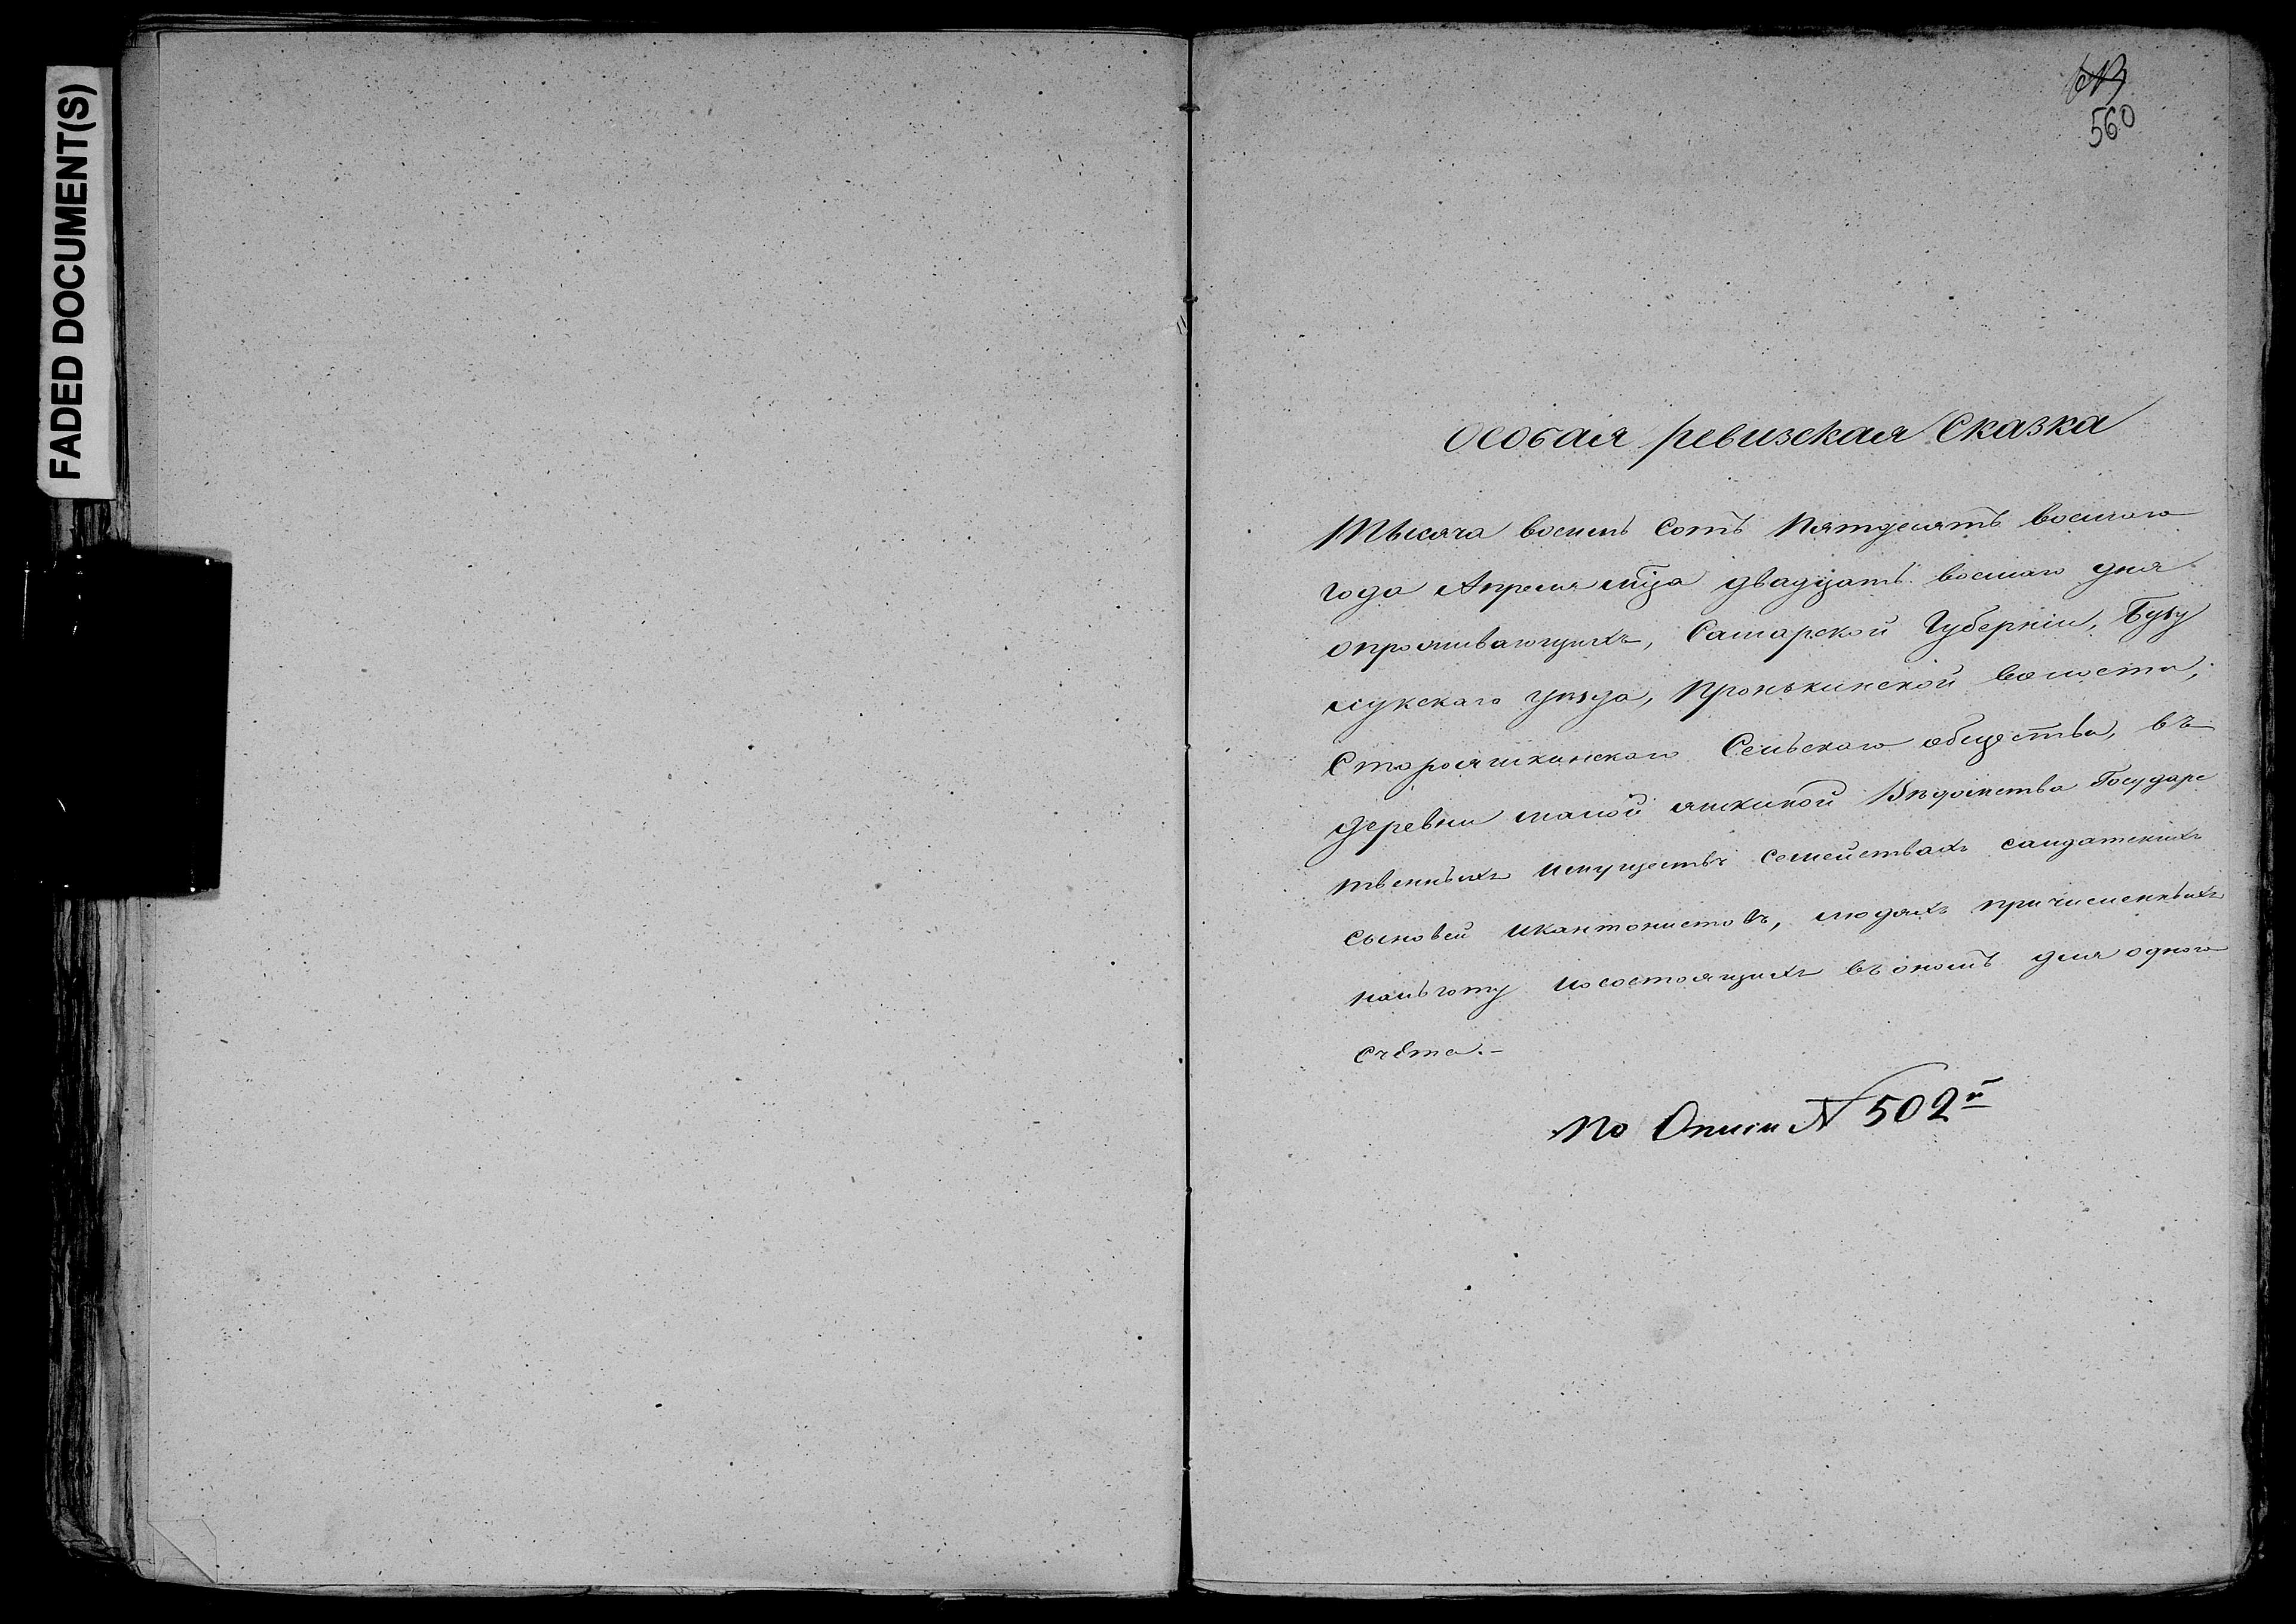 FADED DOCUMENT(S)
560
Особая ревизская Сказка
Тысяча восемь сотъ Пятдесятъ восмаго
года Апреля мца двадцать восмаго дня
опроживающихъ, Самарской Губерніи, Бузу
лукскаго уѣзда, Пронькинской волости,
Старояшкинскаго Сельскаго общества, въ
деревни малой яшкиной Вѣдомства Государс
твенныхъ Имуществъ семействахъ салдатскихъ
сыновей икантонистовъ, людяхъ причисленныхъ
посостоящихъ въ ономъ для одного
счета.-
По Описи N 502й